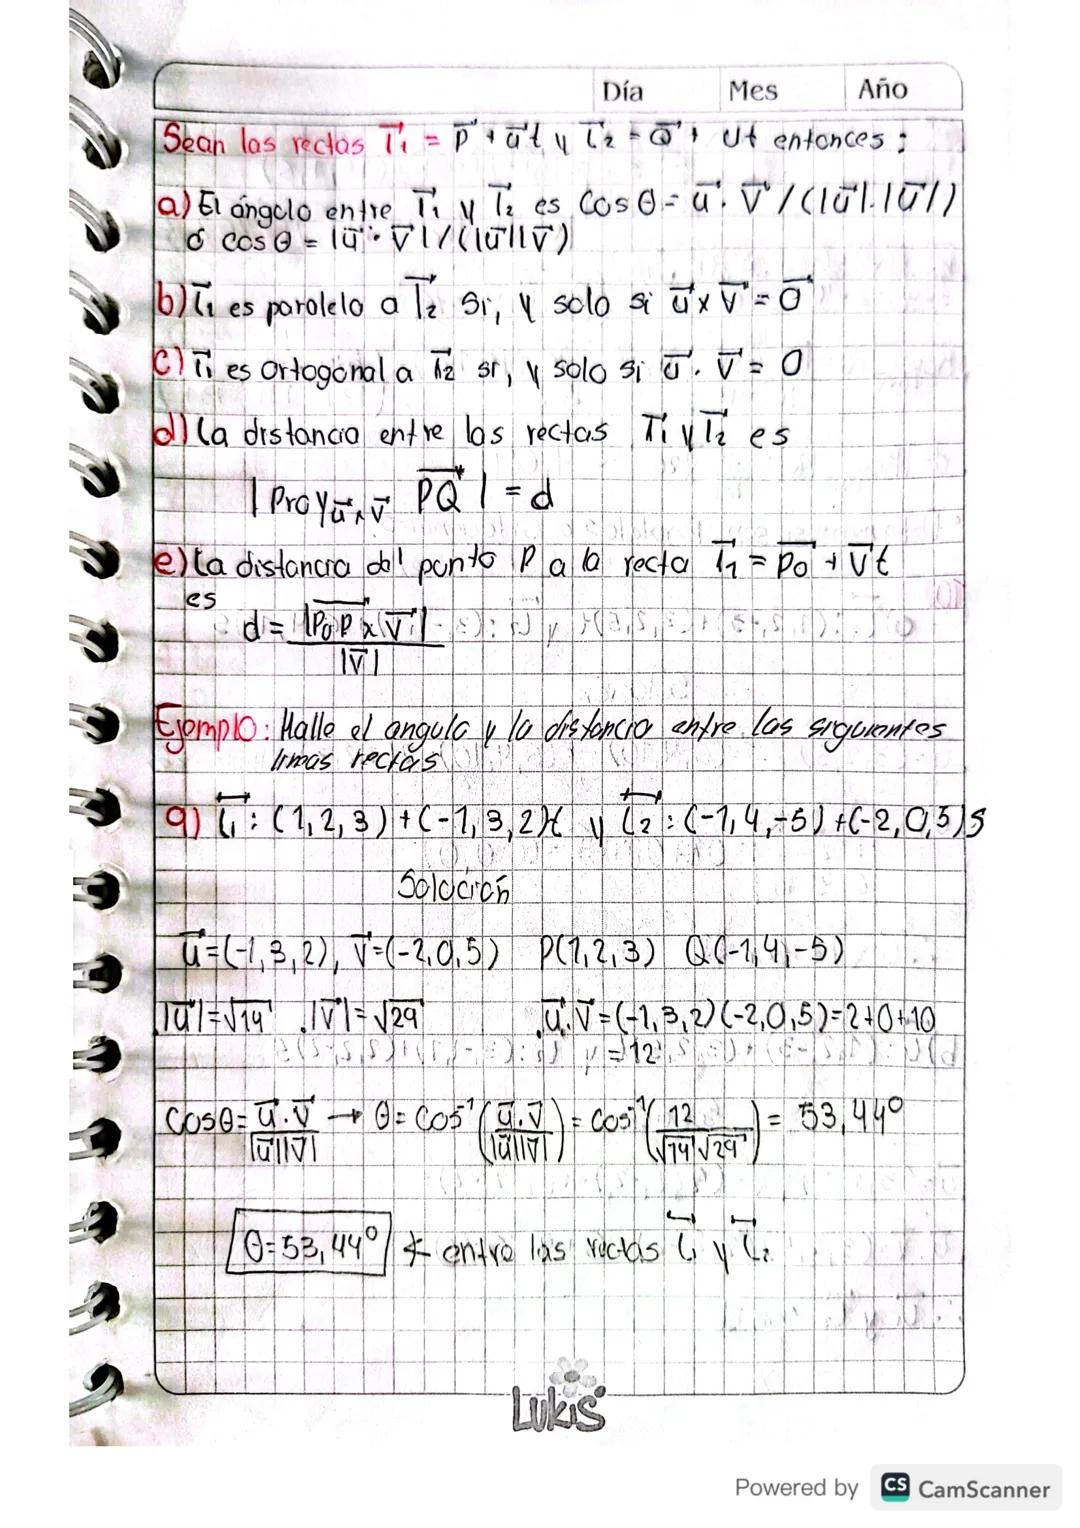 Día Mes Año
Sean las rectas T₁ = P + ūt y L₂ = Q + Ut entonces :
a) El ángulo entre T₁ y T₂ es Cos θ = u · V / (|u|.|U|)
ó cos θ = |u · V| / (|u||V|)
b) L₁ es paralelo a L₂ Si, y solo si u x V = 0
c) T₁ es Ortogonal a T₂ si, y solo si U . V = 0
d) La distancia entre las rectas T₁ y T₂ es
| Proy u x v PQ | = d
e) La distancia del punto P a la recta L₁ = P₀ + Vt
es
d = |P₀P x V|
|V|
Ejemplo: Halle el angulo y la distancia entre las siguientes
lineas rectas
a) L₁ : (1,2,3) + (-1,3,2)t y L₂ : (-1,4,-5) + (-2,0,5)S
Solución
u=(-1,3,2), V=(-2,0,5) P(1,2,3) Q(-1,4,-5)
|u|=√14 . |V|=√29 .u.V=(-1,3,2)(-2,0,5)=2+0+10
=12
Cosθ= u.V / |u||V| → θ= Cos⁻¹ (u.V / |u||V|) = Cos⁻¹ (12 / √14 √29) = 53,44°
θ=53,44° ∢ entre las rectas L₁ y L₂
Lukis
Powered by CS CamScanner